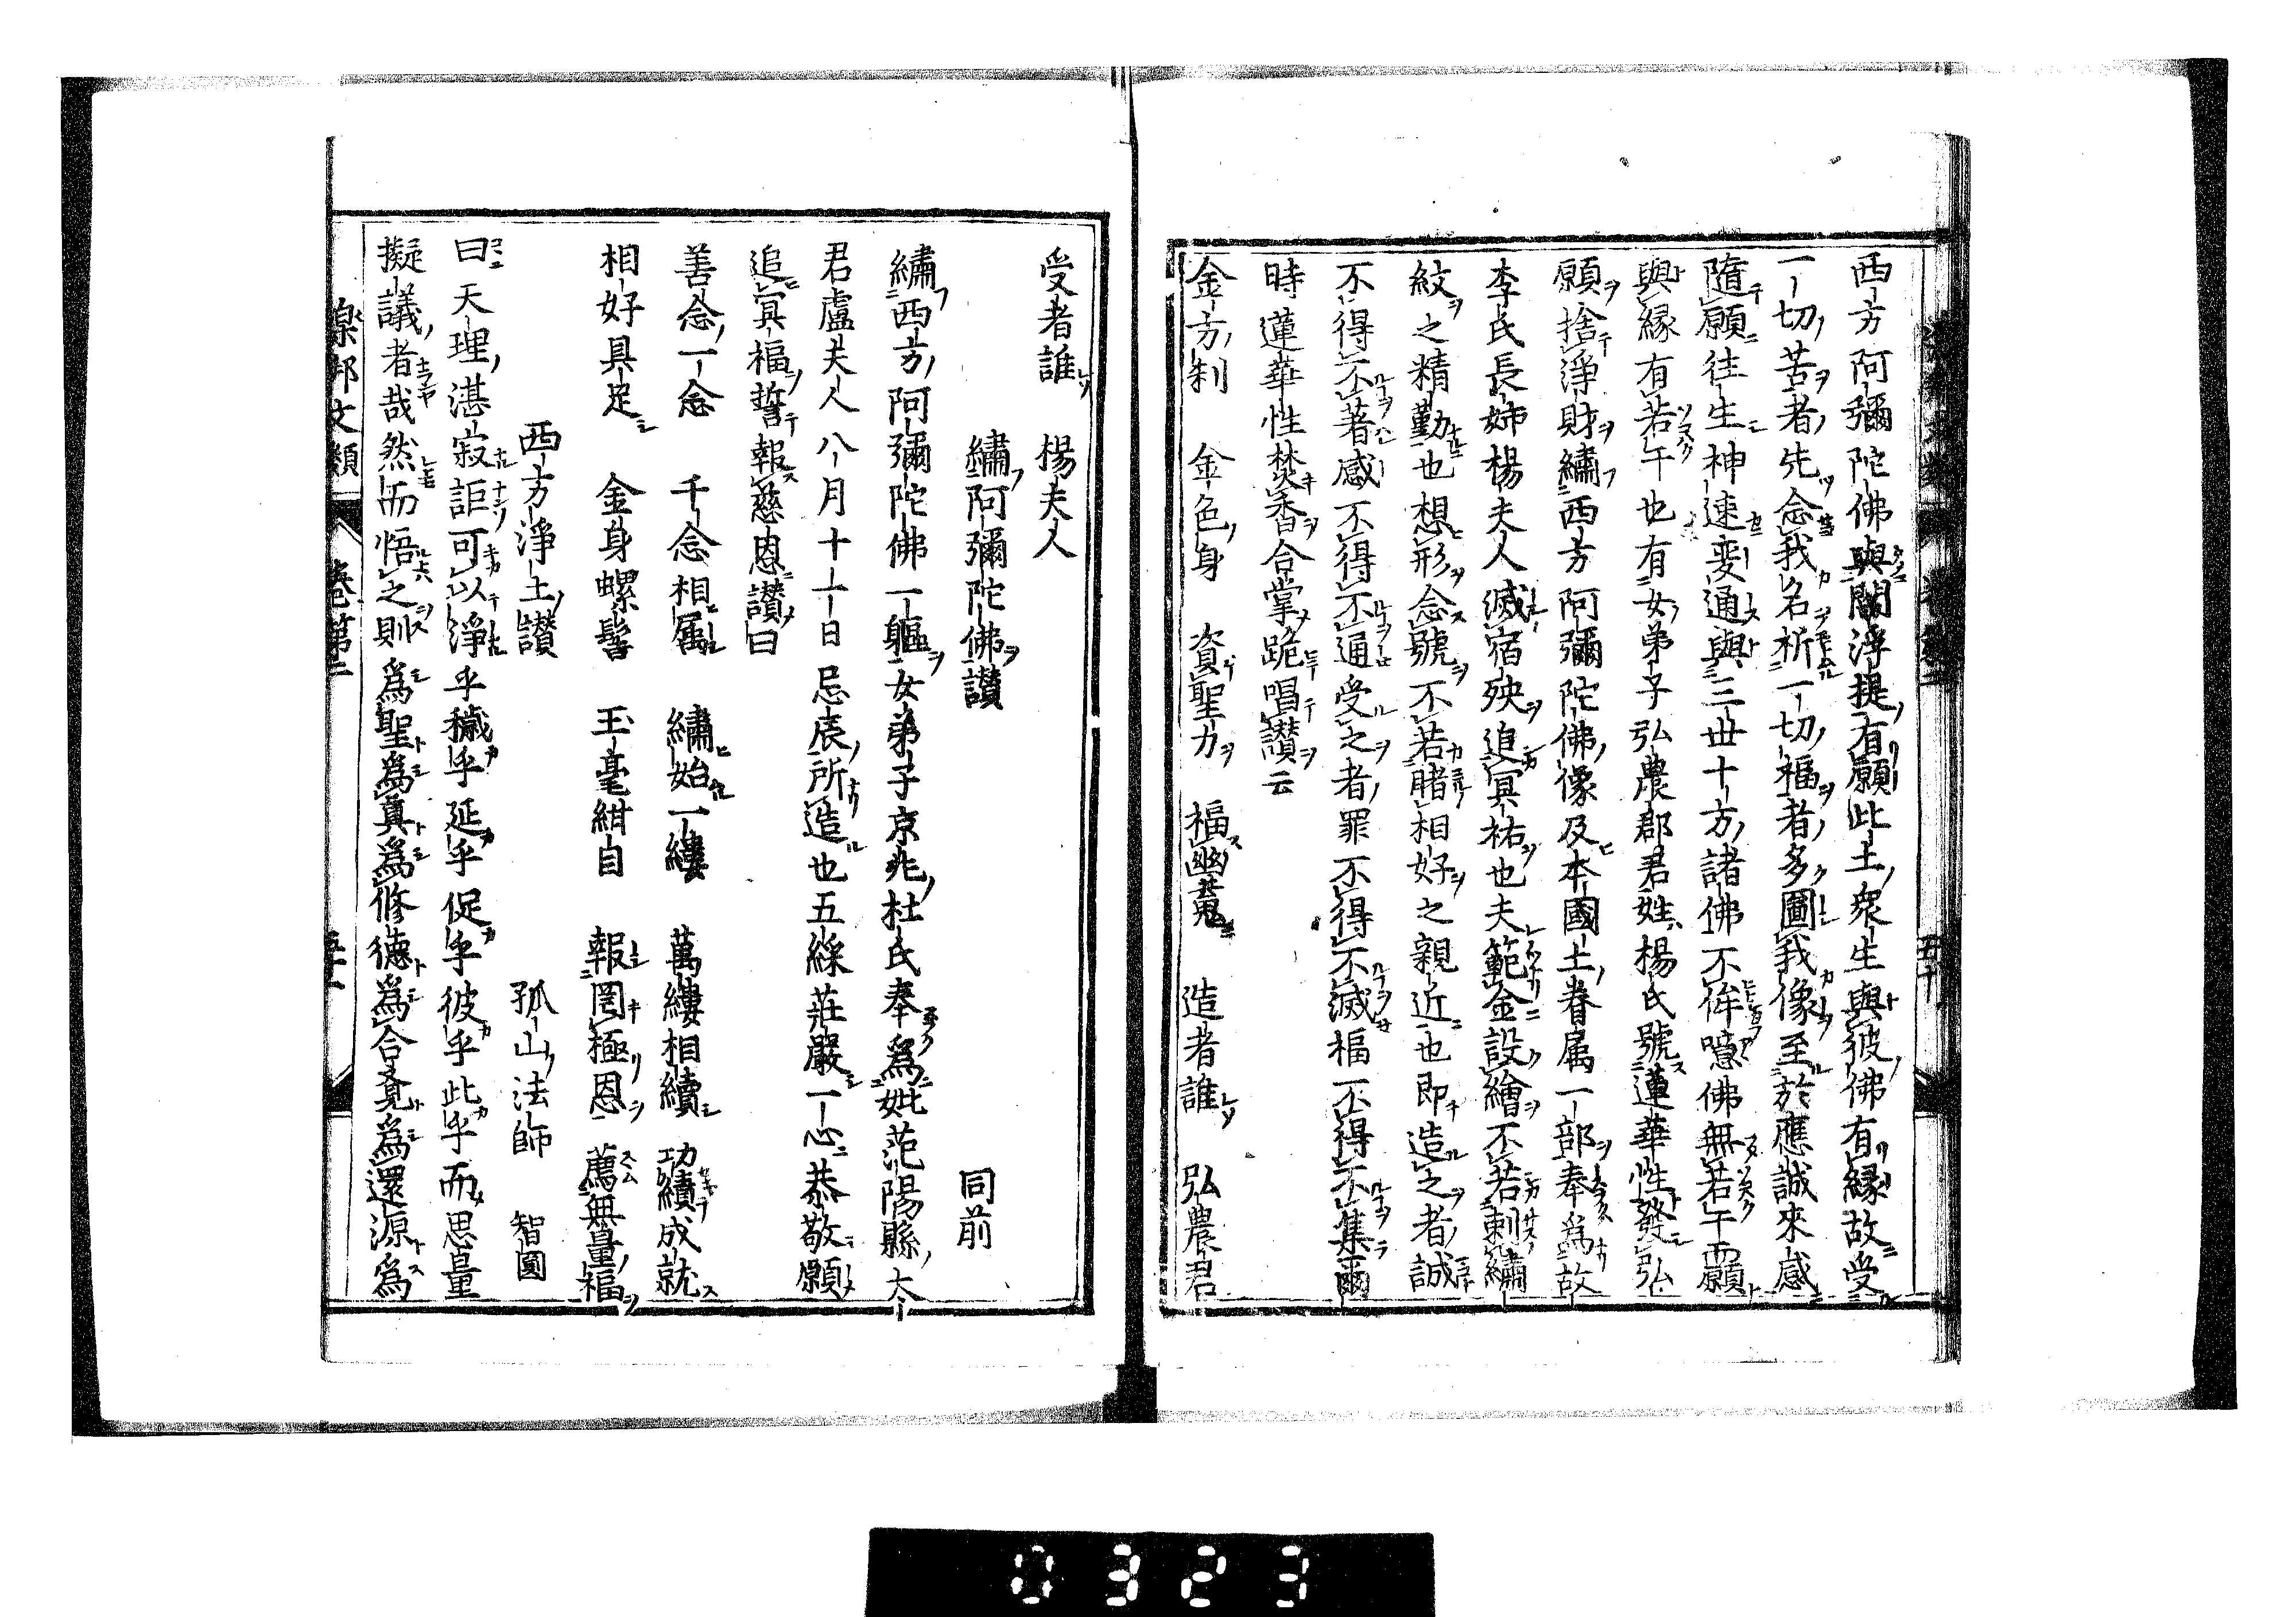 西方阿彌陀佛與閻浮提有願此土衆生與彼佛有縁故受
一切苦者先念我名祈一切福者多圖我像至於應誠來感
隨願往生神速變通與三世十方諸佛不侔噫佛無若干而願
與縁有若干也有女弟子弘農郡君姓楊氏號蓮華性發弘
願捨淨財繡西方阿彌陀佛像及本國土眷属一部奉為故
李氏長姉楊夫人滅宿殃追冥祐也夫範金設繪不若刺繡
紋之精勤也想形念號不若睹相好之親近也即造之者誠
不得不著感不得不通受之者罪不得不滅福不得不集爾
時蓮華性焚香合掌跪唱讃云
金方刹　金色身　資聖力　福幽䰟　造者誰　弘農君
受者誰　楊夫人
繡阿彌陀佛讃　同前
繡西方阿彌陀佛一軀女弟子京兆杜氏奉為妣范陽縣太
君盧夫人八月十一日忌辰所造也五綵莊嚴一心恭敬願
追冥福誓報慈恩讃曰
善念一念　千念相属　繡始一縷　萬縷相續　功績成就
相好具足　金身螺髻　玉毫紺目　報罔極恩　薦無量福
西方淨土讃　孤山法師　智圓
曰天理湛寂詎可以淨乎穢乎延乎促乎彼乎此乎而思量
擬議者哉然而悟之則為聖為真為修德為合覺為還源為
樂邦文類　卷第二